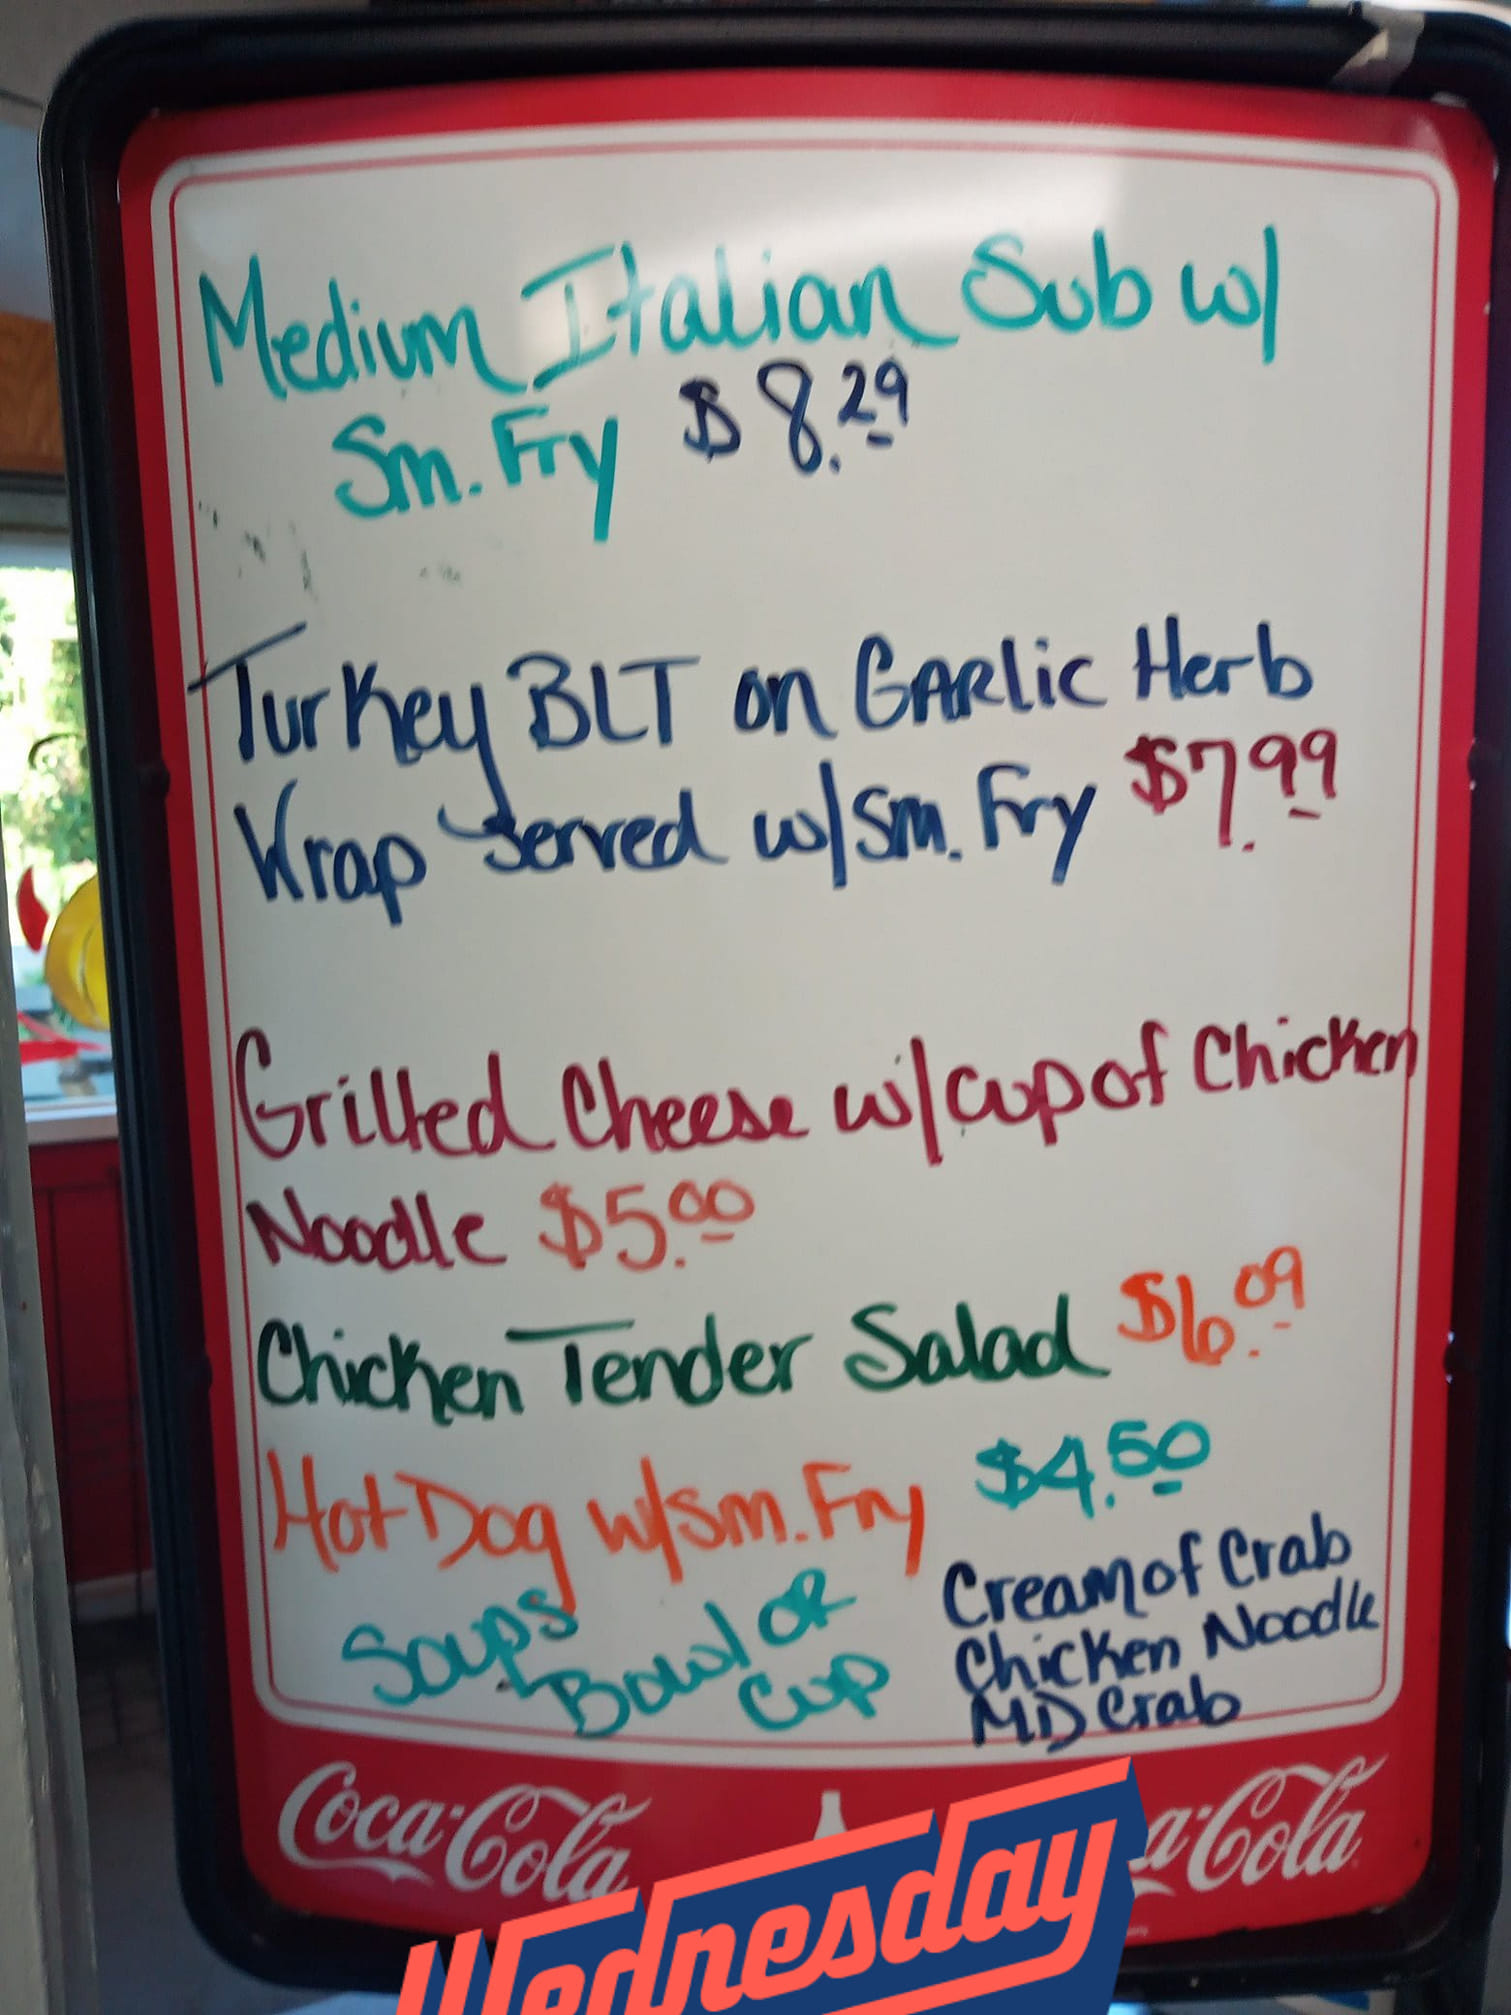 Medium Italian Sub w/
Sm. Fry $8.29
Turkey BLT on Garlic Herb
Wrap served w/sm. Fry $7.99
Grilled Cheese w/cup of Chicken
Noodle $5.00
Chicken Tender Salad $6.09
Hot Dog w/sm. Fry $4.50
Soups
Bowl or
Cup
Cream of Crab
Chicken Noodle
MD Crab
Coca-Cola
a-Cola
Wednesday